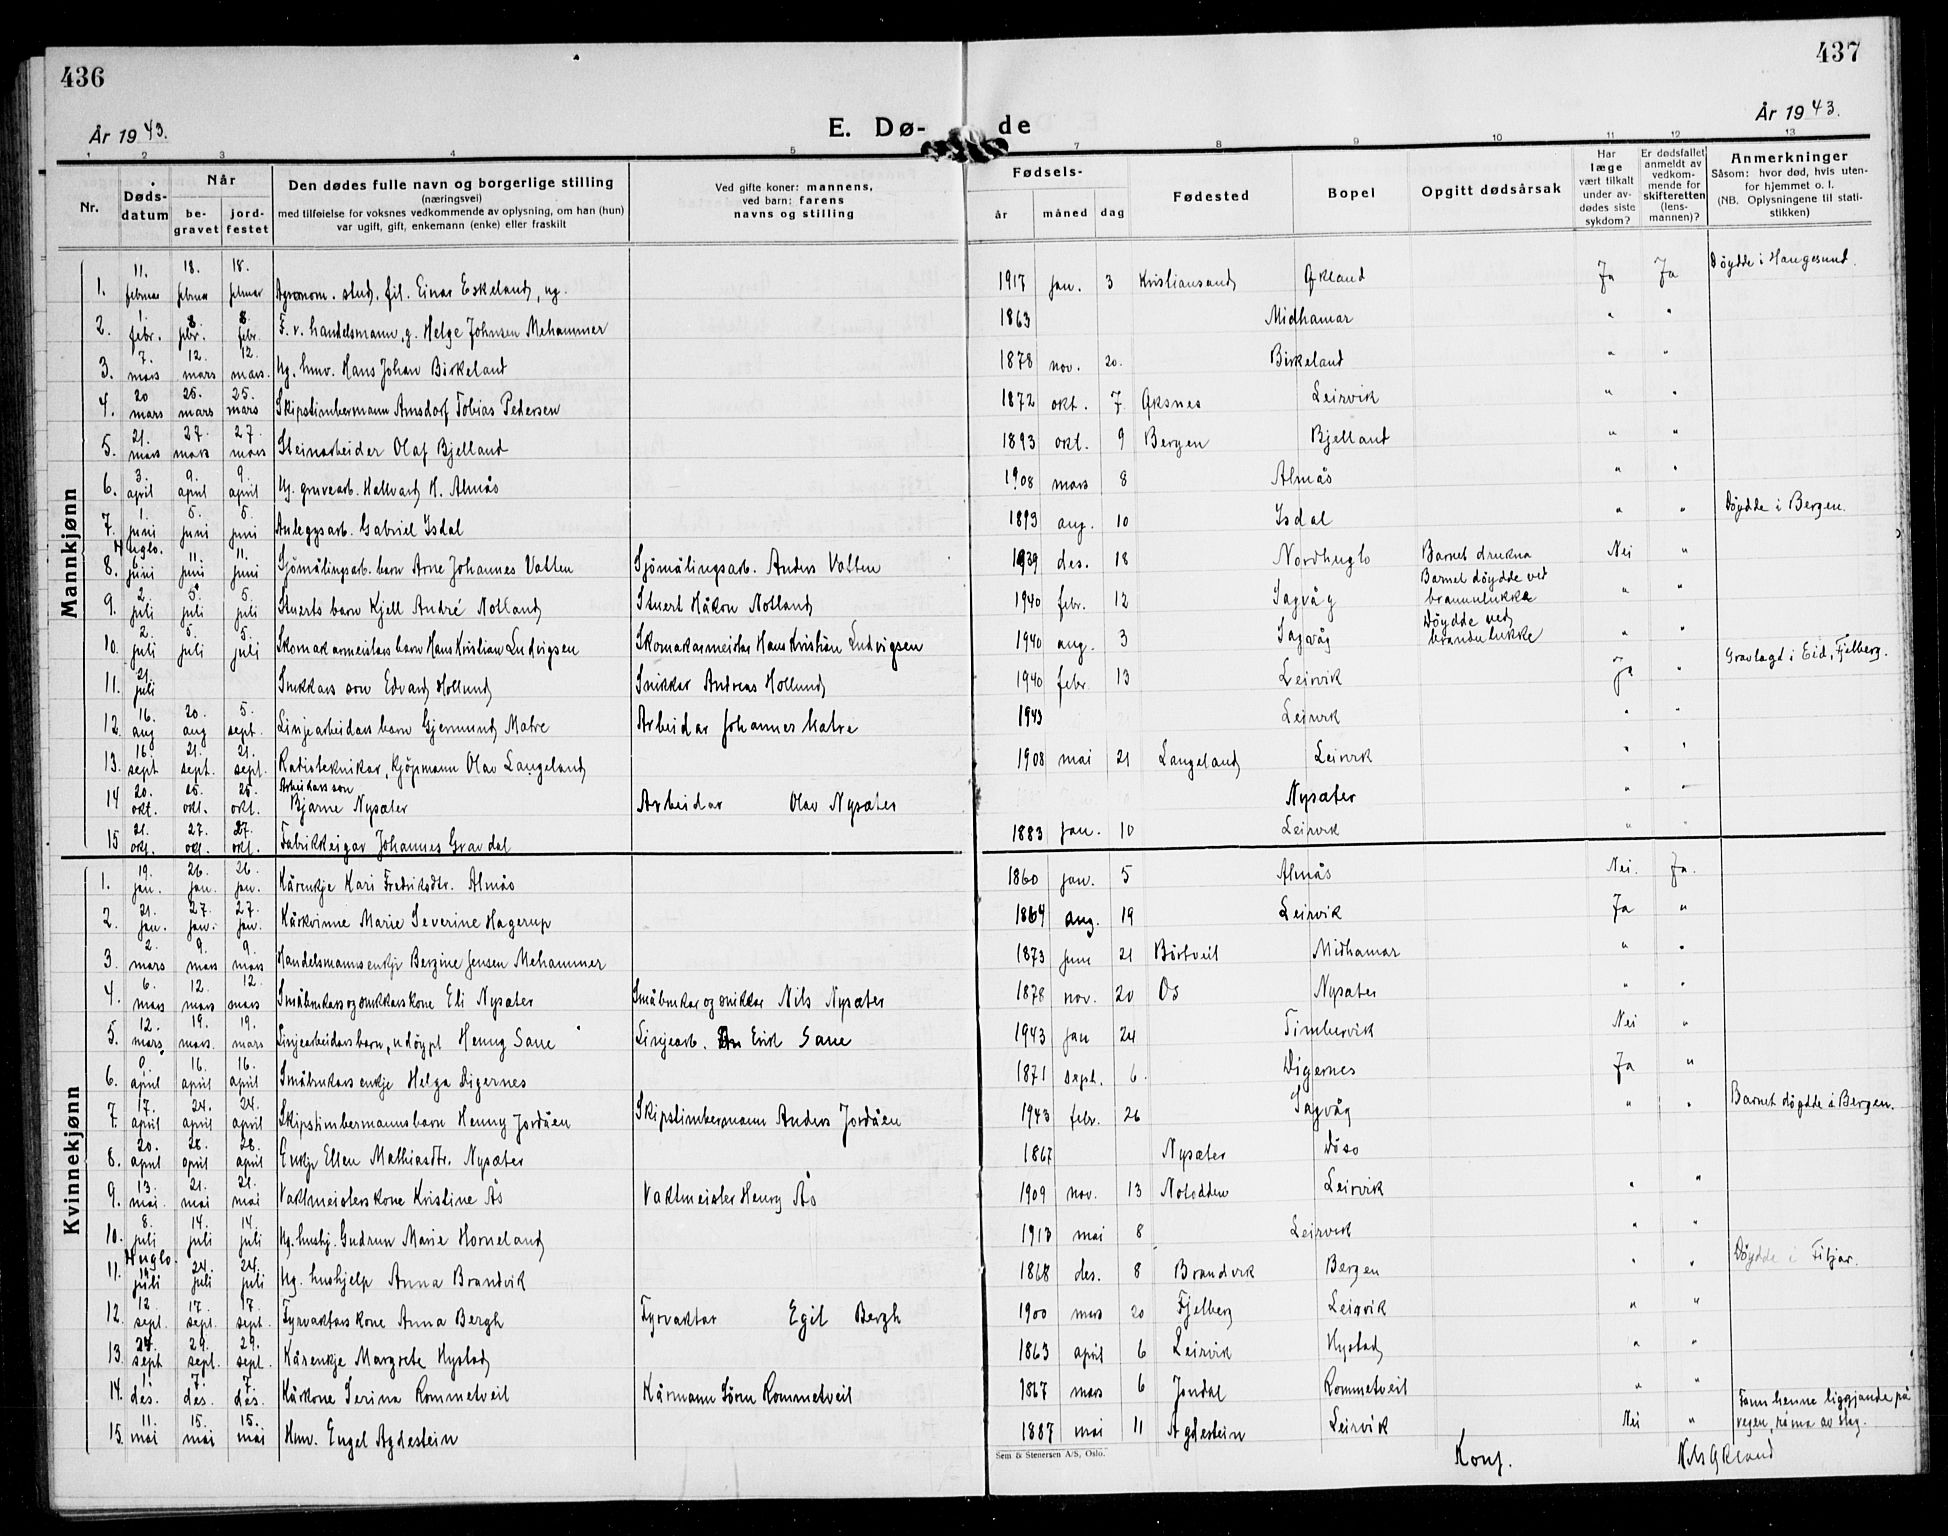 436
437
År 1943.
E. Dø- de
År 1943.
1 2 3 4 5 7 8 9 10 11 12 13
Nr.
Døds-datum
Når
be-gravet
jord-festet
Den dødes fulle navn og borgerlige stilling
(næringsvei)
med tilføielse for voksnes vedkommende av oplysning, om han (hun)
var ugift, gift, enkemann (enke) eller fraskilt
Ved gifte koner: mannens,
ved barn: farens
navns og stilling
Fødsels-
år måned dag
Fødested
Bopel
Opgitt dødsårsak
Har læge vært tilkalt under av-dødes siste sykdom?
Er dødsfallet anmeldt av vedkom-mende for skifteretten (lens-mannen)?
Anmerkninger
Såsom: hvor død, hvis uten-for hjemmet o. l.
(NB. Oplysningene til stati-stikken)
Mannkjønn
1. 11. februar 18. februar 18. februar Agronom. stud. fil. Einar Eskeland, ug. 1917 jan. 3 Kristiansand Økland Ja Ja Döydde i Haugesund.
2. 1. febr. 8. febr. 8. febr. F. v. handelsmann, g. Helge Johnsen Mehammer 1863 Midhamar " "
3. 7. mars 12. mars 12. mars. Ug. hmv. Hans Johan Birkeland 1878 nov. 20. Birkeland " "
4. 20 mars 25. mars 25. mars Skipstimbermann Amsdorf Tobias Pedersen 1872 okt. 7. Øksnes Leirvik " "
5. 21. mars 27. mars 27. mars Steinarbeider Olaf Bjelland 1893 okt. 9 Bergen Bjelland " "
6. 3. april 9. april 9. april Ug. gruvearb. Hallvard H. Almås 1908 mars 8 Almås " "
7. 1. juni 5. juni 5. juni Anleggsarb. Gabriel Isdal 1893 aug. 10 Isdal " " Döydde i Bergen.
Huglo.
8. 6. juni 11. juni 11. juni Sjömålingsarb. barn Arne Johannes Valten Sjömålingsarb. Anders Valten 1939 des. 18 Nordhuglo Barnet drukna Nei "
9. 2. juli 5. juli 5. juli Stuerts barn Kjell André Notland Stuert Håkon Notland 1940 febr. 12 Sagvåg Barnet döydde ved brannulukke " "
10. 2. juli 5. juli 5. juli Skomakarmeistars barn Hans Kristian Ludvigsen Skomakarmeistar Hans Kristian Ludvigsen 1940 aug. 3 Sagvåg Döydde ved brandulukke " "
11. 21. juli Snikkars son Edvard Hollund Snikkar Andreas Hollund 1940 febr 13 Leirvik Ja " Gravlagd i Eid, Fjelberg.
12. 16. aug 20. aug 5. sept. Linjearbeidars barn Gjermund Matre Arbeidar Johannes Matre 1943 Leirvik " "
13. 16. sept 21. sept. 21. sept. Radioteknikar, kjöpmann Olav Langeland 1908 mai 21 Langeland Leirvik " "
14 20. okt. 25. okt. 25. okt. Arbeidars son Bjarne Nysæter Arbeidar Olav Nysæter Nysæter " "
15 21. okt. 27. okt. 27. okt. Fabrikkeigar Johannes Gravdal 1883 jan. 10 Leirvik " "
Kvinnekjønn
1. 19. jan. 26. jan. 26. jan. Kårenkje Kari Fredriksdtr. Almås 1860 jan. 5 Almås Nei. Ja.
2. 21. jan. 27. jan. 27. jan. Kårkvinne Marie Severine Hagerup 1864 aug. 19 Leirvik Ja "
3. 2. mars 9. mars 9. mars Handelsmannsenkje Bergine Jensen Mehammer 1873 juni 21 Börtveit Midhamar " "
4. 6. mars 12. mars 12. mars Småbrukars og snikkarskone Eli Nysæter Småbrukar og snikkar Nils Nysæter 1878 nov. 20 Os Nysæter " "
5. 12. mars 19. mars. 19. mars Linjearbeidars barn, udöypt Henny Sane Linjearb. Erik Sane 1943 jan 24 Timbervik Nei "
6. 9. april 16. april 16. april Småbrukars enkje Helga Digernes 1871 sept. 6. Digernes Ja "
7. 17. april 24. april 24. april Skipstimbermannsbarn Henny Jordåen Skipstimbermann Anders Jordåen 1943 febr. 26 Sagvåg " " Barnet döydde i Bergen.
8. 20. april 28. april 28. april Enkje Ellen Mathiasdtr. Nysæter 1867 Nysæter Döso
9. 13. mai 21. mai 21. mai Vaktmeisterskone Kristine Ås Vaktmeister Henry Ås 1909 nov. 13 Notodden Leirvik " "
10. 8. juli 14. juli 14. juli Ug. hushj. Gudrun Marie Horneland 1913 mai 8 Leirvik " "
Huglo.
11. 19. juli 24. juli 24. juli Ug. hushjelp Anna Brandvik 1868 des. 8 Brandvik Bergen " " Döydde i Fitjar.
12. 12. sept. 17. sept. 17. sept. Fyrvaktars kone Anna Bergh Fyrvaktar Egil Bergh 1900 mars 20 Fjelberg Leirvik " "
13. 24. sept 29. sept. 29. sept. Kårenkje Margrete Hystad 1863 april 6 Leirvik Hystad " "
14. 1. des. 7. des. 7. des. Kårkone Serina Rommetveit Kårmann Sörn Rommetveit 1867 mars 6 Jondal Rommetveit " "
15. 11. mai 15. mai 15. mai Hmv. Engel Agdestein 1887 mai 11 Agdestein Leirvik Nei " Fann henne liggjande på vegen, råma av slag.
Sem & Stenersen A/S, Oslo.
Konf.
Nils Økland